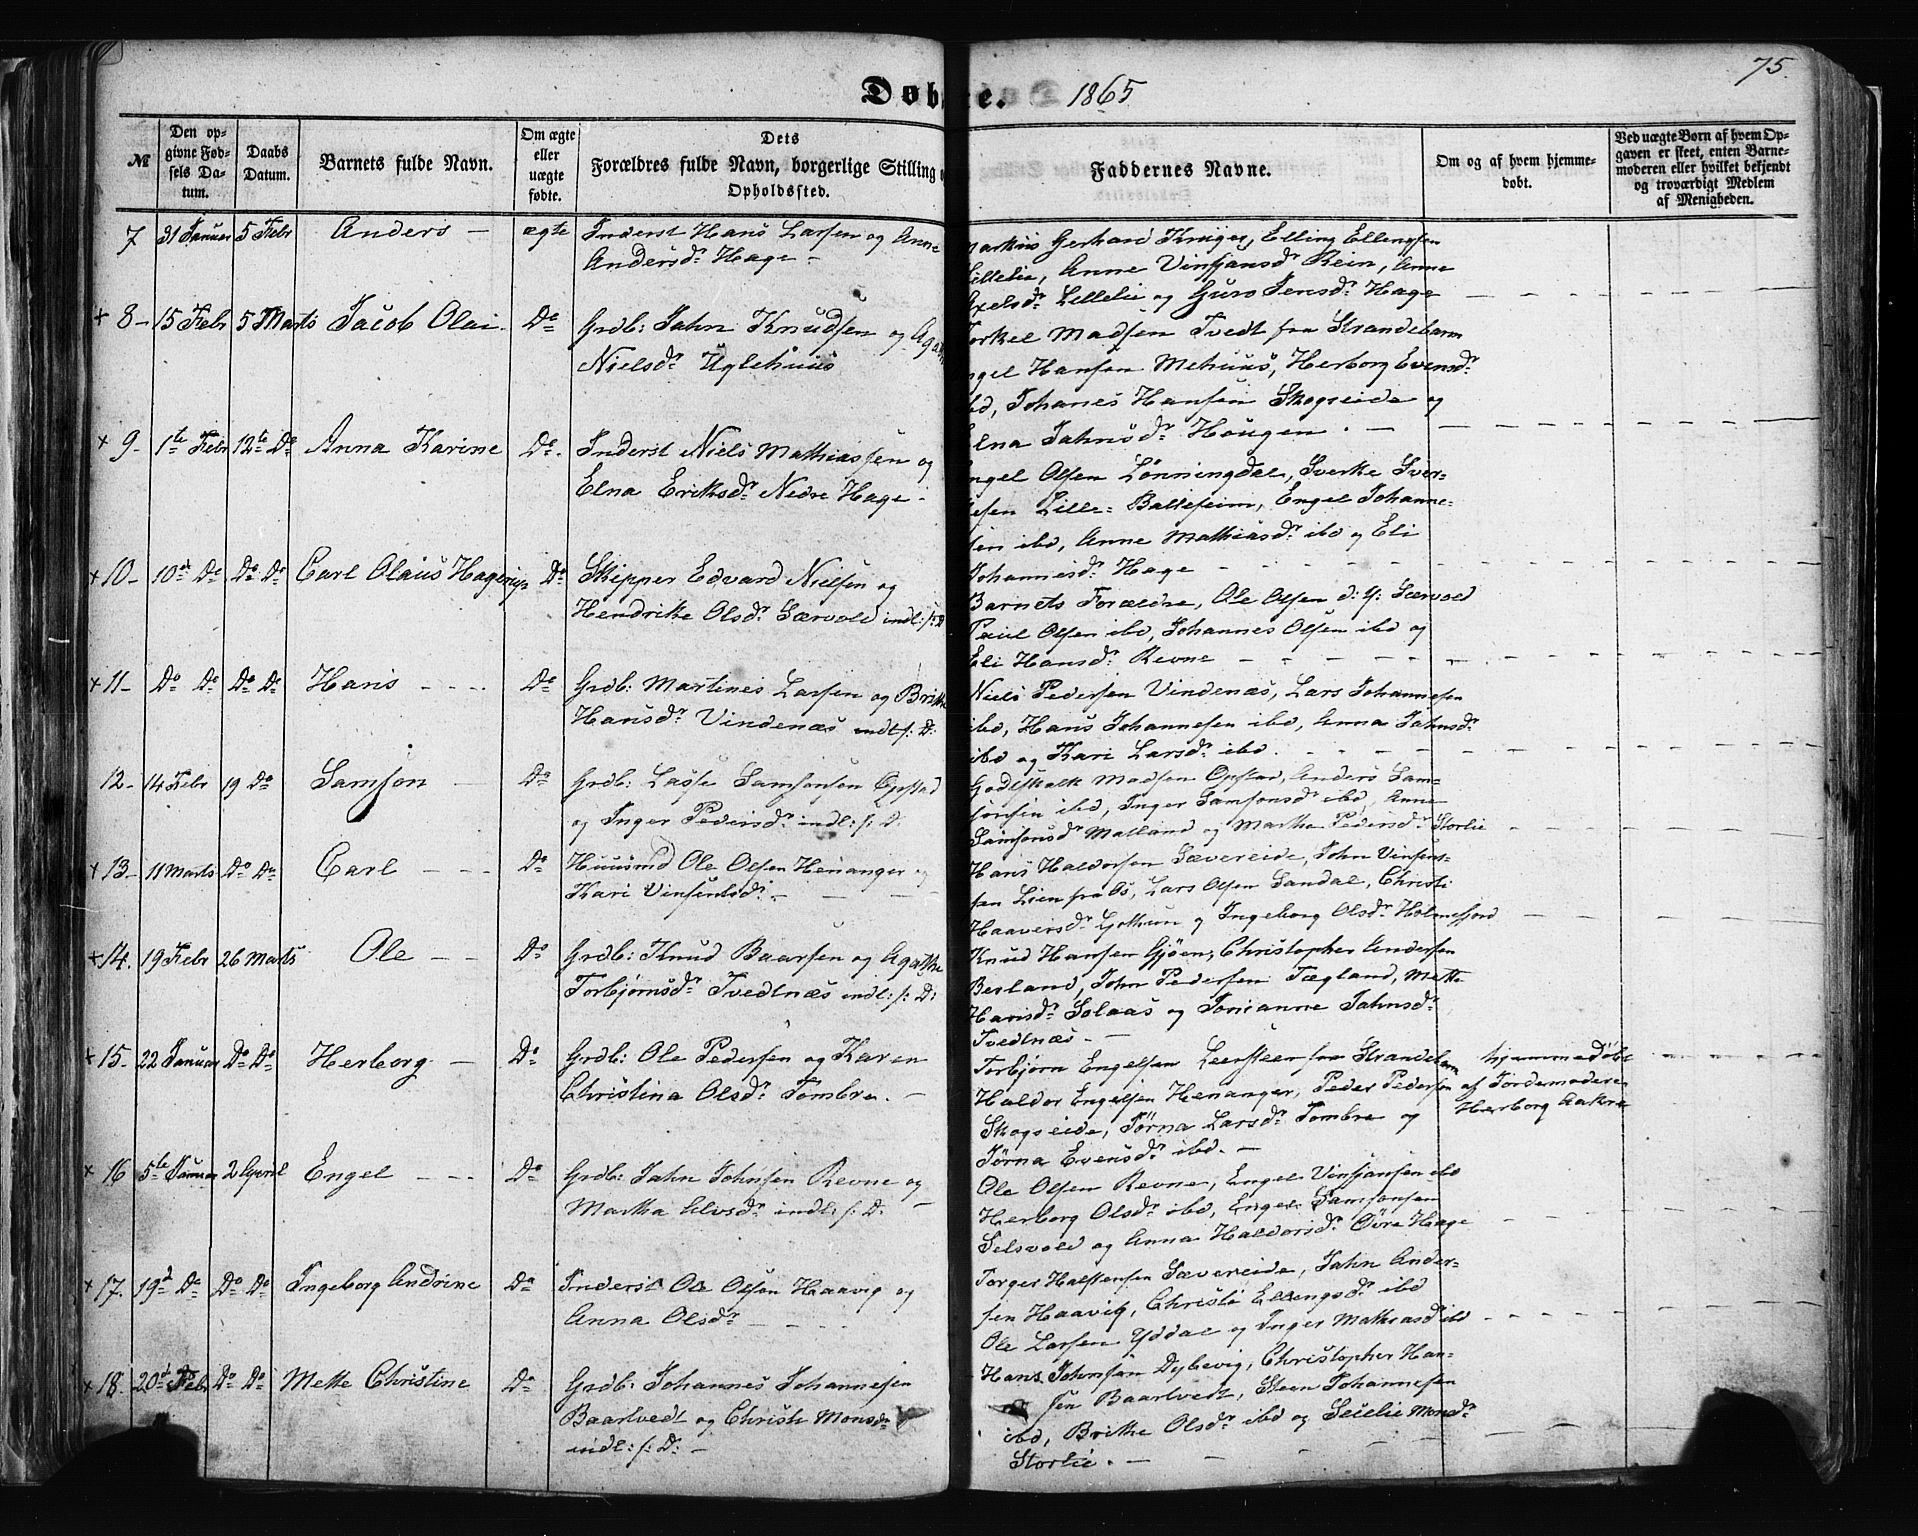 75.
Døbte. 1865
№
Den opgivne Fødsels Datum.
Daabs Datum.
Barnets fulde Navn.
Om ægte eller uægte fødte.
Dets Forældres fulde Navn, borgerlige Stilling o
Opholdssted.
Faddernes Navne.
Om og af hvem hjemmedøbt.
Ved uægte Børn af hvem Opgaven er skeet, enten Barnemoderen eller hvilket bekjendt og troværdigt Medlem af Menigheden.
7 31 Januar 5 Febr Anders – ægte Inderst Hans Larsen og Anne
Andersdr Hage –
Markus Gerhard Krüger, Elling Ellengsen
Lillelie, Anne Vinsjansdr Rein, Anne
Axelsdr Lillelie og Guro Jensdr Hage
+ 8 – 15 Febr 5 Marts Jacob Olai Do Grdb: Jahn Knudsen og Agath
Nielsdr Uglehuus
Torkel Madsen Tvedt fra Strandebarm
ngel Hansen Mehuus, Herborg Evensdr
ibd, Johanes Hansen Skogseide og
Elna Jahnsdr Hougen. –
+ 9 – 1te Febr 12te Do Anna Karine Do. Inderst Niels Mathiassen og
Elna Eriksdr Nedre Hage –
ngel Olsen Lønningdal, Sverke Sver-
kesen Lille-Balleseim, Engel Johanne-
sen ibd, Anne Mathiasdr ibd og Eli
Johannesdr Hage
+ 10 – 10de Do Do Do Carl Olaus Hagerup Do Skipper Edvard Nielsen og
Hendrike Olsdr Særvold indl: s: D
Barnets Forældre, Ole Olsen d. y. Særvold
Paul Olsen ibd, Johannes Olsen ibd og
Eli Hansdr Revne
+ 11 – Do Do Do Do Hans Do Grdb: Martines Larsen og Brithe
Hansdr Vindenæs indl s: D:
Niels Pedersen Vindenæs, Lars Johannesen
ibd, Hans Johannesen ibd, Anna Jahnsdr
ibd og Kari Larsdr ibd.
12 – 14 Febr 19 Do Samson – Do Grdb: Lasse Samsonsen Opstad
og Inger Pedersdr indl: s: D.
Godtskalk Madsen Opstad, Anders Sam-
sonsen ibd, Inger Samsonsdr ibd, Anne
Samsonsdr Malland og Martha Pedersdr Storlie
+ 13 – 11 Marts Do Do Carl Do Huusmd Ole Olsen Henanger og
Kari Vinsentsdr. –
Hans Haldorsen Sævereide, John Vinsens-
sen Lien fra Os, Lars Olsen Sandal, Christi
Haaversdr Gothun og Ingeborg Olsdr Holmefjord
+ 14. 19 Febr 26 Marts Ole Do Grdb: Knud Baarsen og Agathe
Torbjørnsdr Tvedtnæs indl: s: D:
Knud Hansen Gjøen, Christopher Andersen
Berland, John Pedersen Tægland, Mette
Hansdr Solaas og Jorianne Jahnsdr
Tvedtnæs. –
+ 15 – 22 Januar Do Do Herborg – Do Grdb: Ole Pedersen og Karen
Christina Olsdr Tombre. –
Torbjørn Engelsen Leersteen fra Strandebarm
Haldor Engelsen Henanger, Peder Pedersen
Skogseide, Tørna Larsdr Tombre og
Tørna Evensdr ibd. –
hjemmedøbt
af Jordemoderen
Herborg Aakre
+ 16 5te Januar 2 April Engel Do Grdb: Jahn Johnsen Revne og
Martha Alvsdr indl: s: D.
Ole Olsen Revne, Engel Vinsjansen ibd
Herborg Olsdr ibd, Engel Samsonsen
Selsvold og Anna Haldorsdr Øvre Hage
+ 17. 19de Do Do Do Ingeborg Andrine Do Inderst Ole Olsen Haavig og
Anna Olsdr
Torger Halstensen Sævereide, Jahn Ander-
sen Haavig, Christi Ellengsdr ibd
Ole Larsen Yddal og Inger Mathiasdr ibd
+ 18. 20de Febr Do Do Mette Christine Do Grdb: Johannes Johannesen
Baartvedt og Christi Monsdr
indl: s: D: –
Hans Johnsen Dybevig, Christopher Han-
sen Baartvedt, Steen Johannesen
ibd, Brithe Olsdr ibd og Seselie Monsdr
Storlie. –